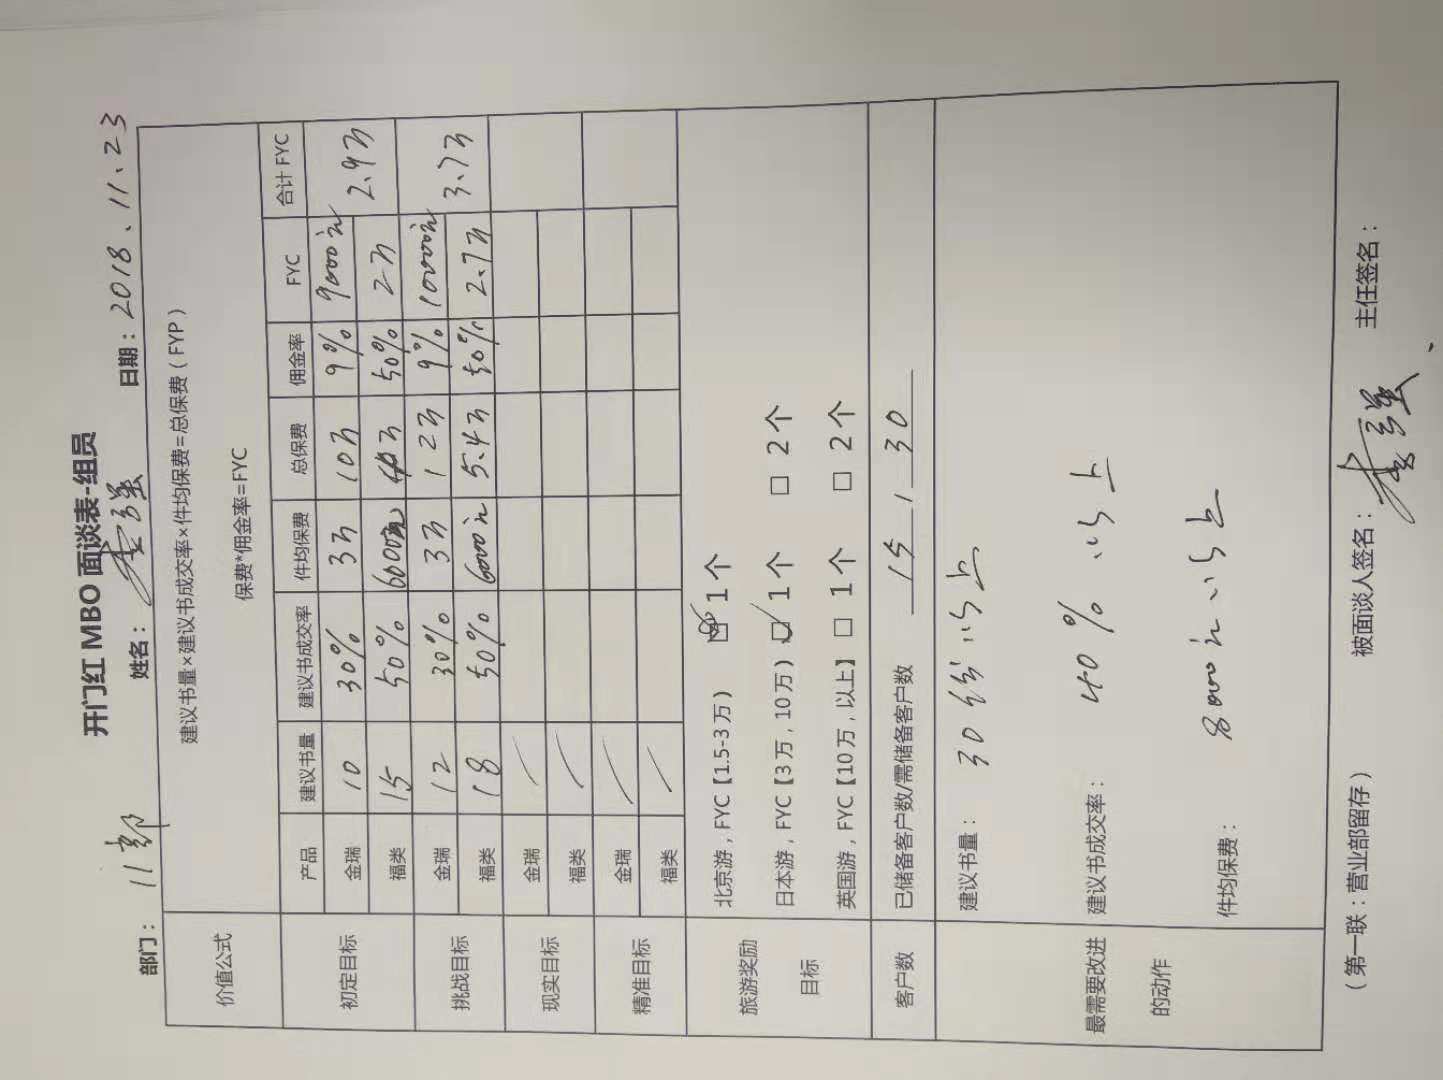 开门红 MBO 面谈表-组员
部门： 11部 姓名： 日期：2018.11.23
价值公式 建议书量×建议书成交率×件均保费=总保费（FYP）
保费*佣金率=FYC
产品 建议书量 建议书成交率 件均保费 总保费 佣金率 FYC 合计 FYC
初定目标 金瑞 10 30% 3万 10万 9% 9000元 2.9万
福类 15 50% 6000元 4万 50% 2万
挑战目标 金瑞 12 30% 3万 12万 9% 10000元 3.7万
福类 18 50% 6000元 5.4万 50% 2.7万
现实目标 金瑞
福类
精准目标 金瑞
福类
旅游奖励目标 北京游，FYC【1.5-3万） ☑ 1个
日本游，FYC【3万，10万） ☑ 1个 □ 2个
英国游，FYC【10万，以上】 □ 1个 □ 2个
客户数 已储备客户数/需储备客户数 15 / 30
最需要改进的动作 建议书量： 30份以上
建议书成交率： 40% 以上
件均保费： 8000元以上
（第一联：营业部留存） 被面谈人签名： 主任签名：